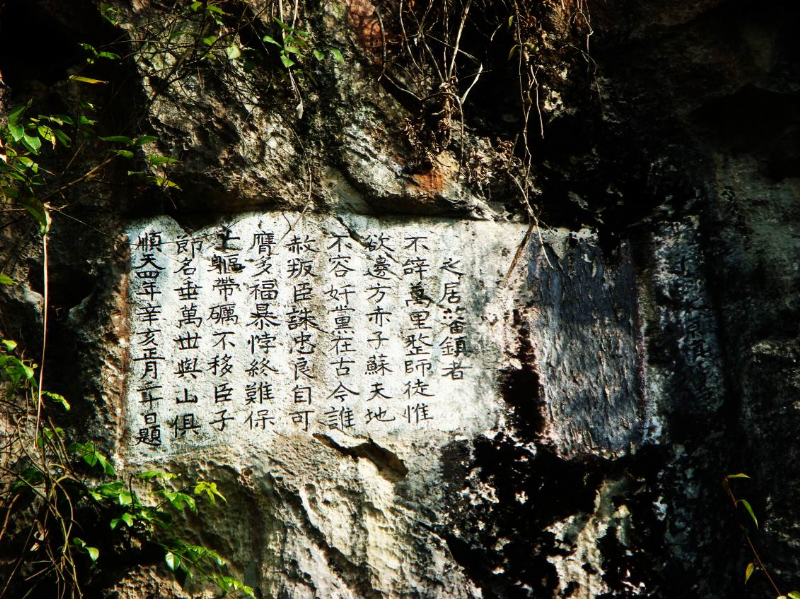 之居蕃鎮者
不辞萬里整師徒惟
欲邊方赤子蘇天地
不容奸黨在古今誰
赦叛臣誅忠良自可
膺多福暴悖終難保
一軀帶礪不移臣子
節名垂萬世與山俱
順天四年辛亥正月二日題